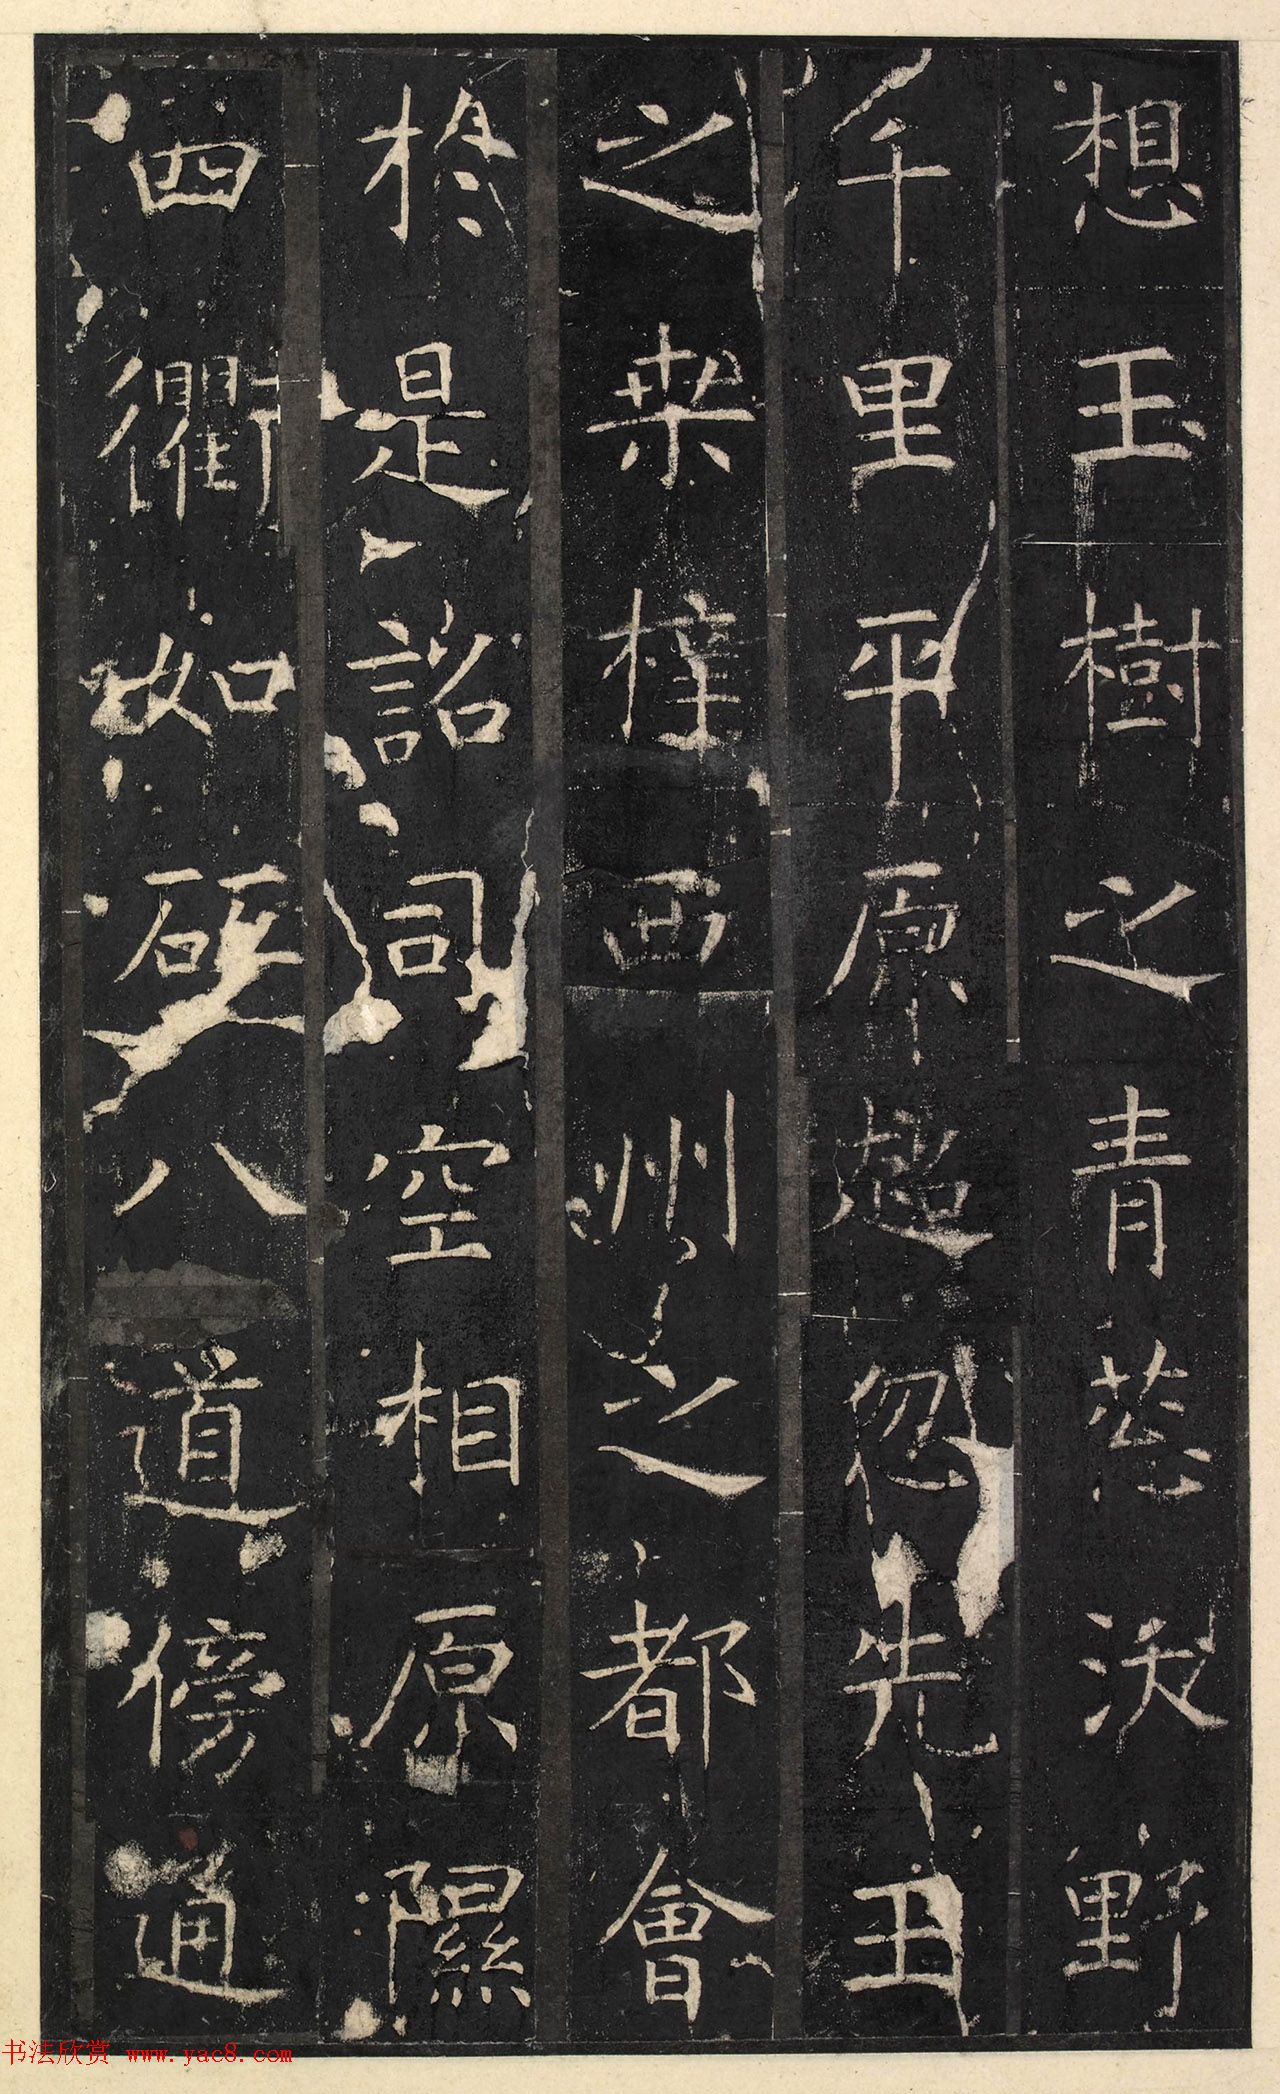 想玉樹之青葱決野
千里平原超忽先王
之桑梓西州之都會
於是詔司空相原隰
四衢如砥八道傍通
书法欣赏 www.yac8.com